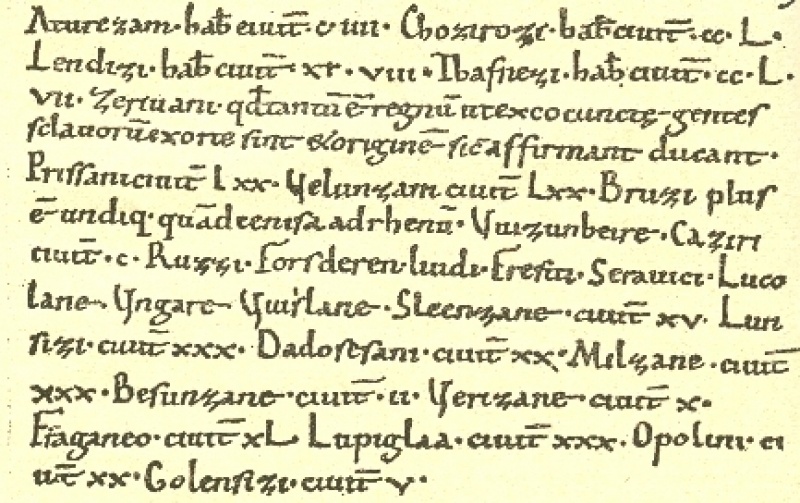 Aturezani· hab̅ ciuit̅· c· iiii· Chozirozi· hab̅ ciuit̅· cc· L·
Lendizi· hab̅ ciuit̅ xc· viii· Thafnezi· hab̅ ciuit̅· cc· L·
vii· Zeriuani· qd̅ tantu̅ e̅ regnu̅ ut ex eo cunctę gentes
sclauoru̅ exorte sint & origine̅ sic̅ affirmant ducant·
Prissani ciuit̅ Lxx· Velunzani ciuit̅ Lxx· Bruzi plus
e̅ undiq· qua̅ de enisa ad rhenu̅· Vuizunbeire· Caziri
ciuit̅· c· Ruzzi· Forsderen· liudi· Fresiti· Serauici· Luco
lane· Vngare· Vuislane· Sleenzane· ciuit̅ xv· Lun
sizi· ciuit̅ xxx· Dadosesani· ciuit̅ xx· Milzane· ciuit̅
xxx· Besunzane· ciuit̅· ii· Verizane· ciuit̅ x·
Fraganeo· ciuit̅ xL Lupiglaa· ciuit̅ xxx· Opolini· ci
uit̅ xx· Golensizi· ciuit̅ v·